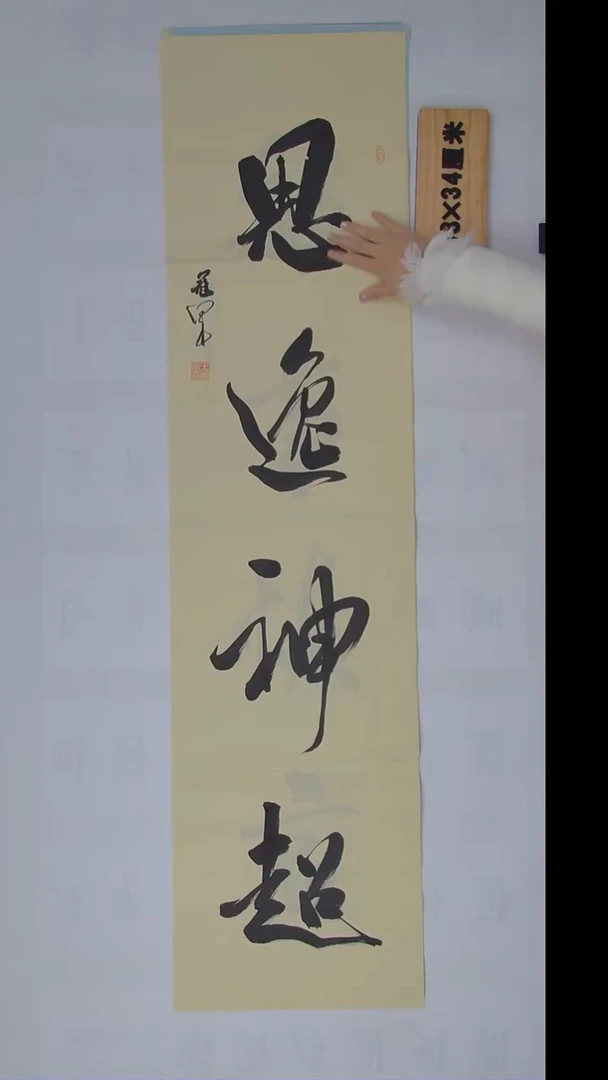 思逸神超
3×34厘米